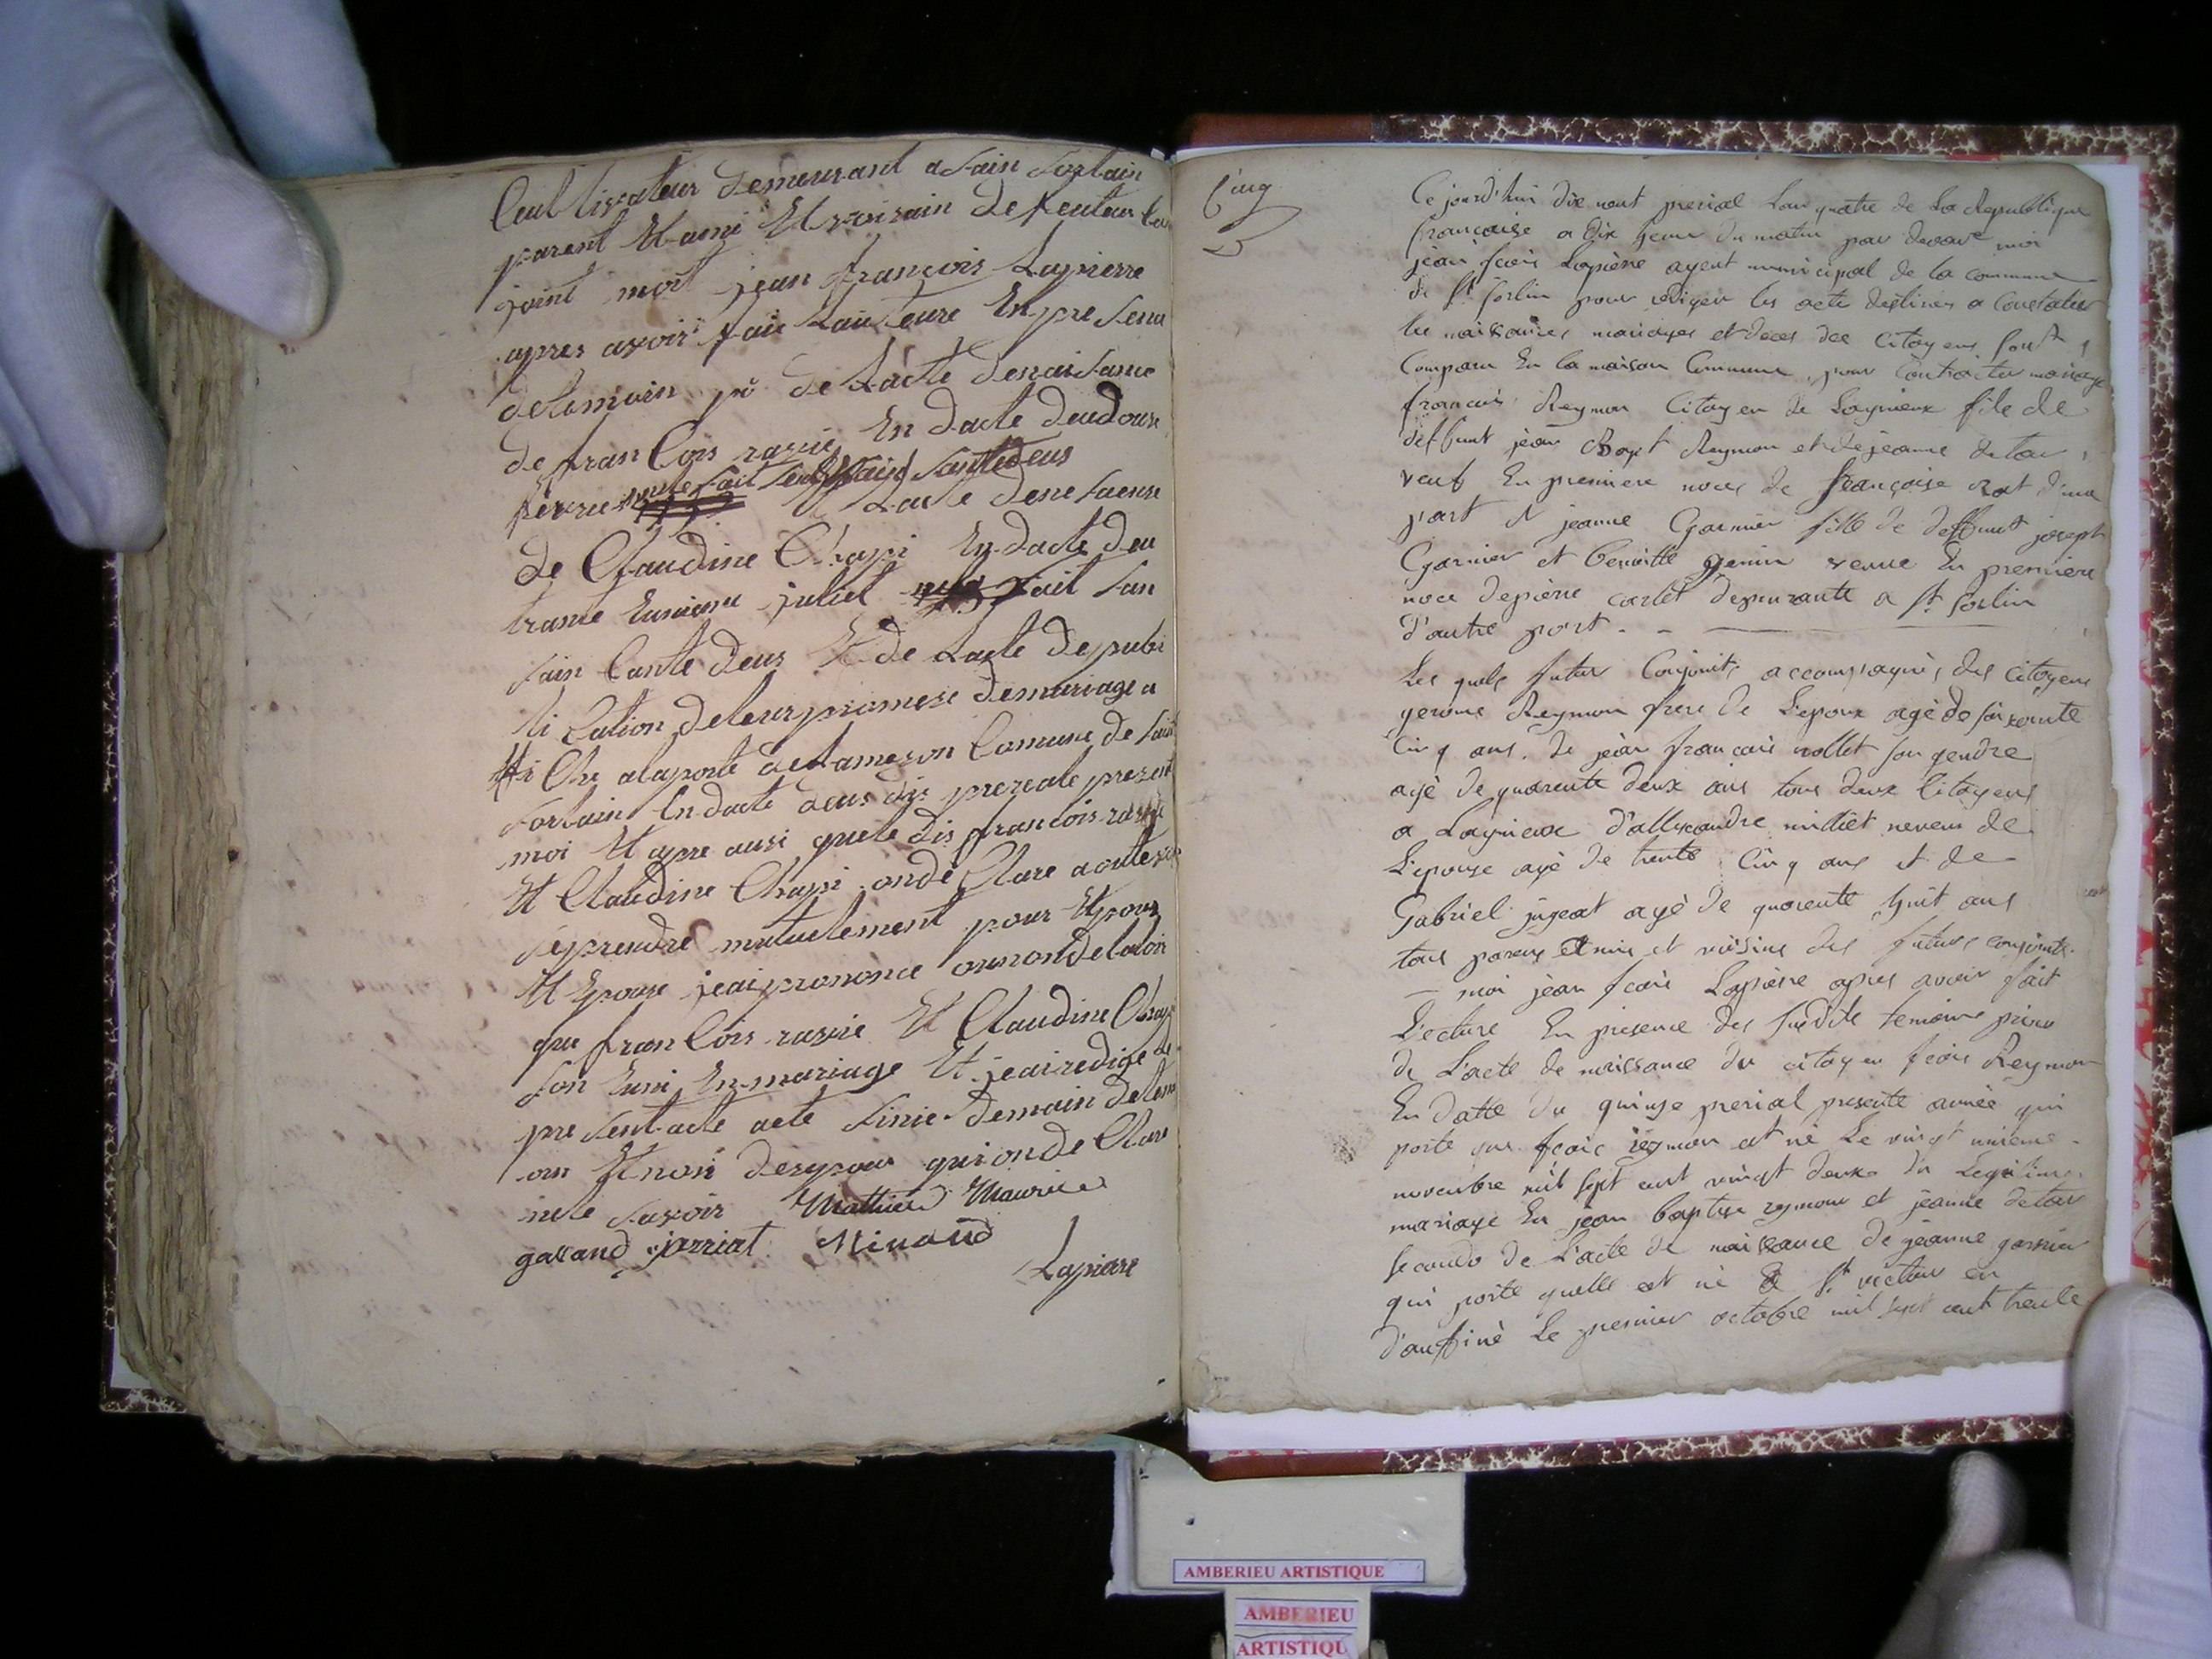 Cultivateur demeurant a sain Sorlain
parent Et ami Et voisain de feuteur
joint moi jean françois Lapierre
apres avoir fait Lauteure En pre sena
de temoin po de Lacte denaisance
de franCois En dacte deu douse
Lacte
de Claudine Chapi En dacte deu
trante juliet fait san
sain Cante deus Et de Lacte de publi
li Cation de leur promese demariage a
fi Che a laporte de Lameson Comune de sain
sorlain En dacte deus dis prereale present
moi Et apre ausi que le dis francois
Et Claudine Chapi on dé Clare aoute
se prendre mutuelement pour Epous
Et Epouse jeai prononcé aunon de laloir
que franCois Et Claudine Chapi
son Euni En mariage Et jeai redigé le
pre sent acte acte Sinié demain de tem
oin Et non des epous qui on de Clare
ne le savoir Mathieu Maurice
galland jarriat Minand
Lapierre
Cinq
Ce jourd'hui dix neuf prerial Lan quatre de La Republique
francaise a dix heure du matin par devant moi
jean fcois Lapierre agent municipal de la commune
de St Sorlin pour rediger les acte destines a Constater
les naissances mariages et deces des Citoyens sont
Comparu En la maison Commune, pour Contracter mariage
francois Reymon Citoyen de Lagnieux fils de
deffunt jean Bapt Reymon et de jeanne
veuf En premiere noces de françoise d'une
part et jeanne Garnier fille de deffunt joseph
Garnier et benoitte genin veuve En premiere
noce depierre carlet demeurante a St Sorlin
d'autre part.
Les quels futur Conjoints accompagnés des Citoyens
gerome Reymon frere de L'epoux agé de soixante
Cinq ans. de jean francois vollet son gendre
agé de quarente deux ans tous deux Citoyens
a Lagnieux d'allexandre milliet neveux de
L'epouse agé de trente Cinq ans et de
Gabriel jugeat agé de quarente huit ans
tous parens Et amis et voisins des futurs conjoints.
moi jean fcois Lapierre apres avoir fait
Lecture En presence des susdits temoins primo
de L'acte de naissance du citoyen fcois Reymon
En datte du quinze prerial presente année qui
porte que fcois reymon est né Le vingt unieme
novembre mil sept cent vingt deux du Legitime
mariage En jean baptiste reymon et jeanne
secondo de L'acte de naissance de jeanne garnier
qui porte quelle est né a St victor en
d'auffiné Le premier octobre mil sept cent trente
AMBERIEU ARTISTIQUE
AMBERIEU
ARTISTIQU